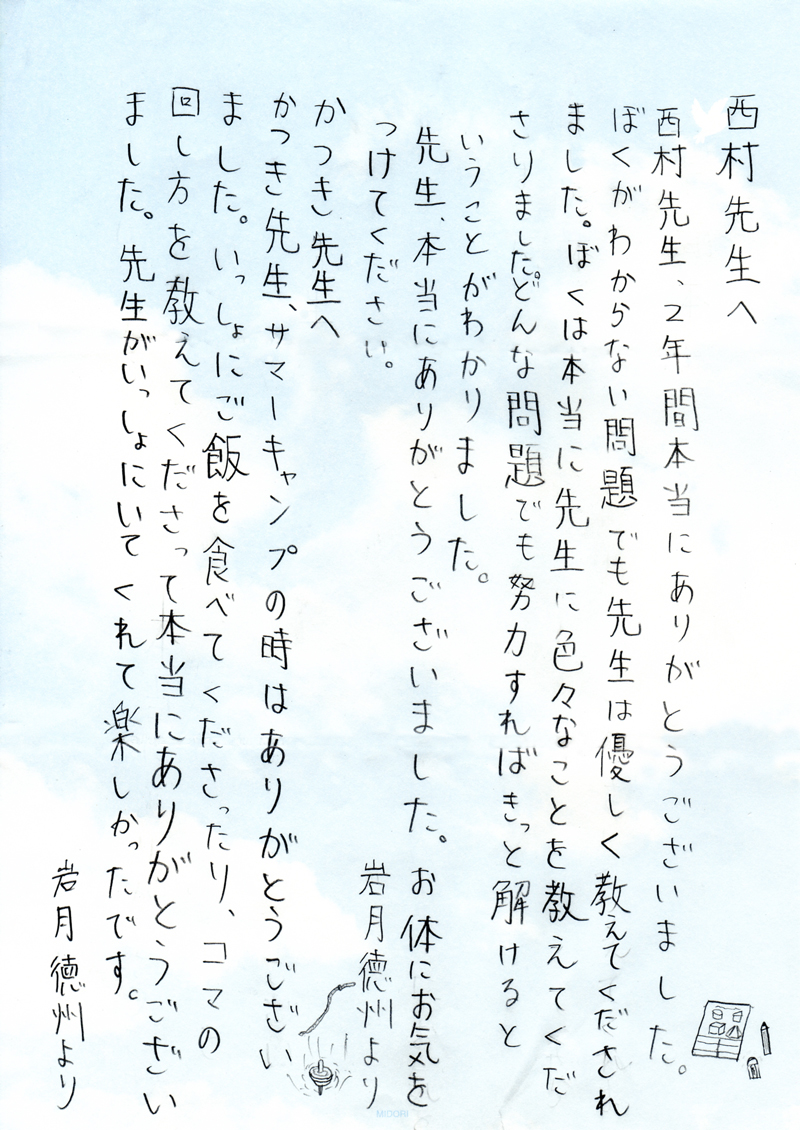 西村先生へ
西村先生、2年間本当にありがとうございました。
ぼくがわからない問題でも先生は優しく教えてくだされ
ました。ぼくは本当に先生に色々なことを教えてくだ
さりました。どんな問題でも努力すればきっと解けると
いうことがわかりました。
先生、本当にありがとうございました。お体にお気を
つけてください。
岩月徳州より
かつき先生へ
かつき先生、サマーキャンプの時はありがとうござい
ました。いっしょにご飯を食べてくださったり、コマの
回し方を教えてくださって本当にありがとうござい
ました。先生がいっしょにいてくれて楽しかったです。
岩月徳州より
MIDORI